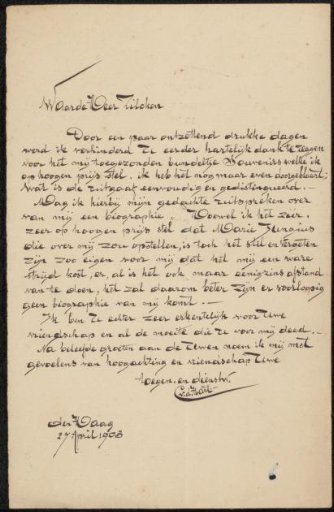 Waarde Heer Zilcken
Door een paar ontzettend drukke dagen
werd ik verhinderd U eerder hartelijk dank te zeggen
voor het mij toegezonden bundeltje Souvenirs welke ik
op hoogen prijs stel. ik heb het nog maar even doorgebladerd
Wat is de uitgaaf eenvoudig en gedistingueerd.
Mag ik hierbij mijn gedachte uitspreken over
van mij een biographie. Hoewel ik het zeer,
zeer op hoogen prijs stel dat Marie Jungius
die over mij zou opstellen, is toch het stel
zijn zoo eigen voor mij dat het mij een ware
strijd kost, er, al is het ook maar eenigzins afstand
van te doen, het zal daarom beter zijn er voorloopig
geen biographie van mij komt.
Ik ben U echter zeer erkentelijk voor Uwe
vriendschap en al de moeite die U voor mij deed.
Na beleefde groeten aan de Uwen noem ik mij met
gevoelens van hoogachting en vriendschap Uwe
toegen. en dienstv.
den Haag
27 April 1903